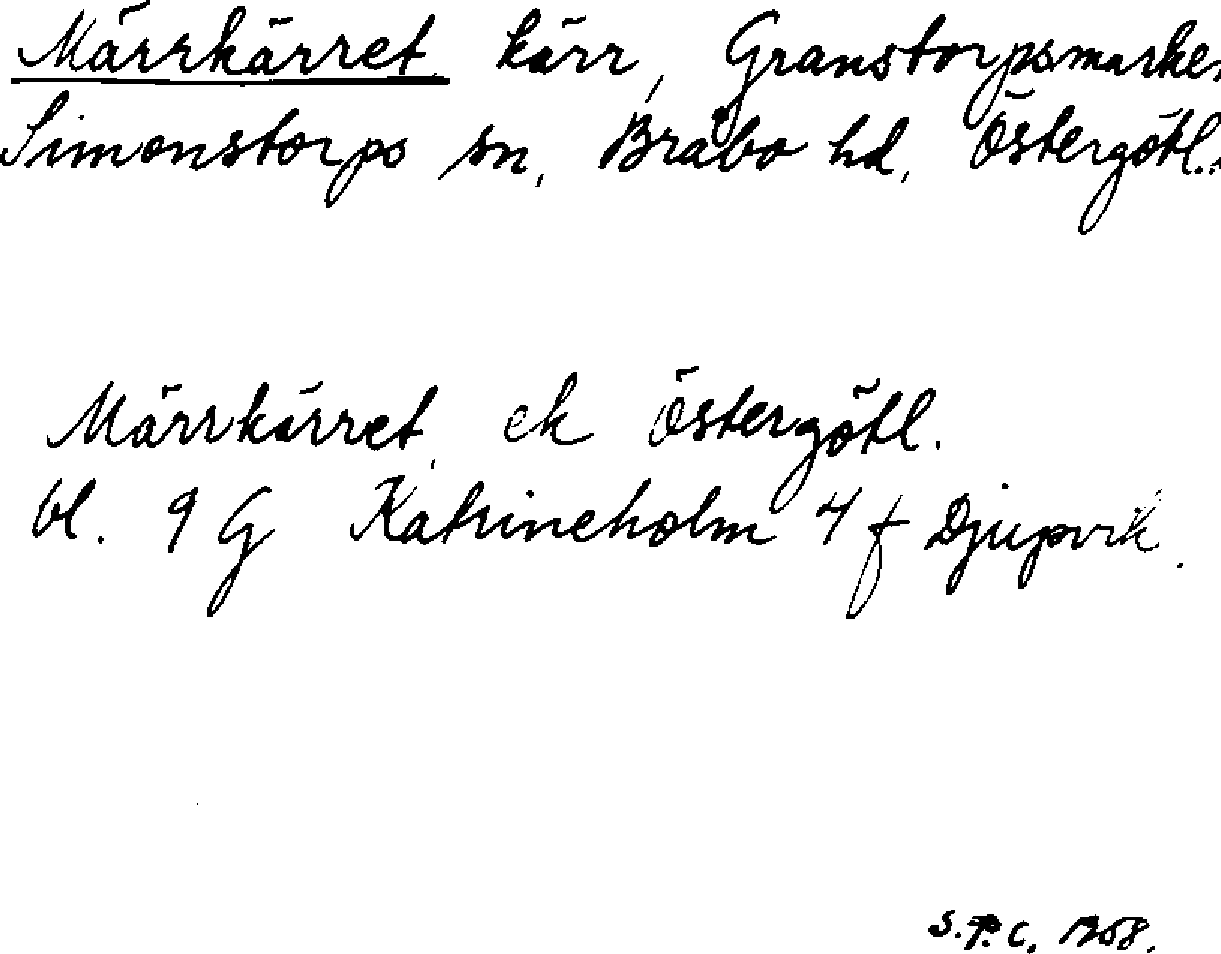 Märrkärret, kärr, Granstorpsmarken
Simonstorps sn, Bråbo hd, Östergötl.
Märrkärret, ek Östergötl.
bl. 9 G Katrineholm 4 f Djupvik.
S.P.C. 1958.